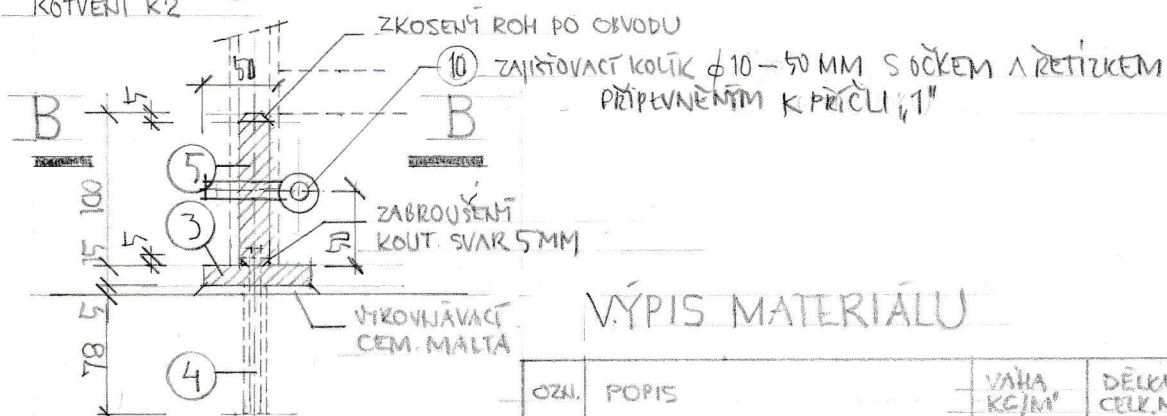 KOTVENÍ K2
ZKOSENÝ ROH PO OBVODU
50
10 ZAJIŠŤOVACÍ KOLÍK ϕ10-50 MM S OČKEM A ŘETÍZKEM
PŘIPEVNĚNÝM K PŘÍČLI „1"
B
5
B
5
100
3
ZABROUŠENÝ
KOUT. SVAR 5MM
50
5
15
5
VYROVNÁVACÍ
CEM. MALTA
VÝPIS MATERIÁLU
78
4
OZN.
POPIS
VÁHA
KG/M'
DÉLKA
CELK.